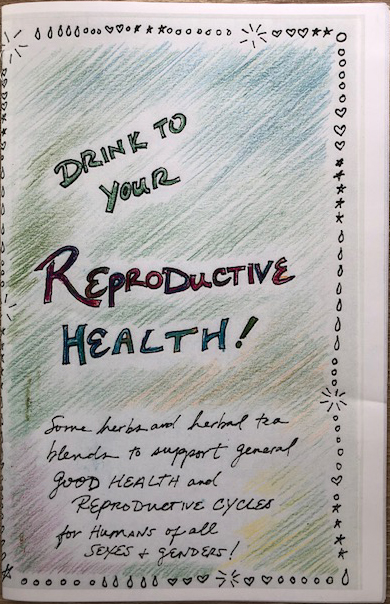 DRINK TO
YOUR
REPRODUCTIVE
HEALTH!
Some herbs and herbal tea
blends to support general
GOOD HEALTH and
REPRODUCTIVE CYCLES
for HUMANS of all
SEXES + GENDERS!